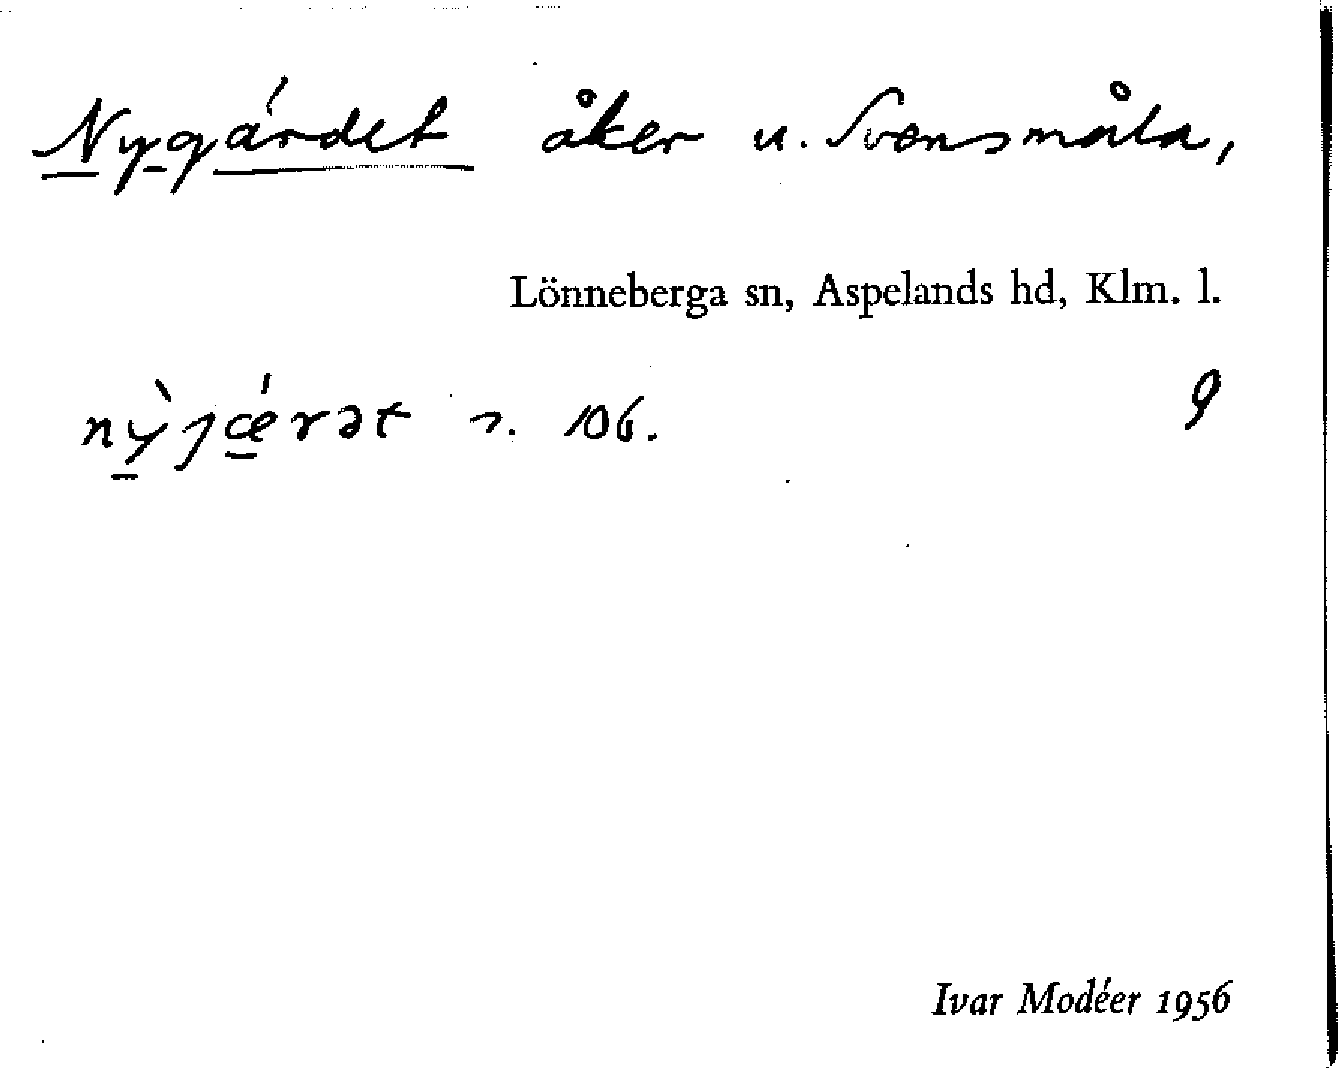 Nygärdet åker u. Svensmåla,
Lönneberga sn, Aspelands hd, Klm. l.
nỳjǽrət n. 106. 9
Ivar Modéer 1956